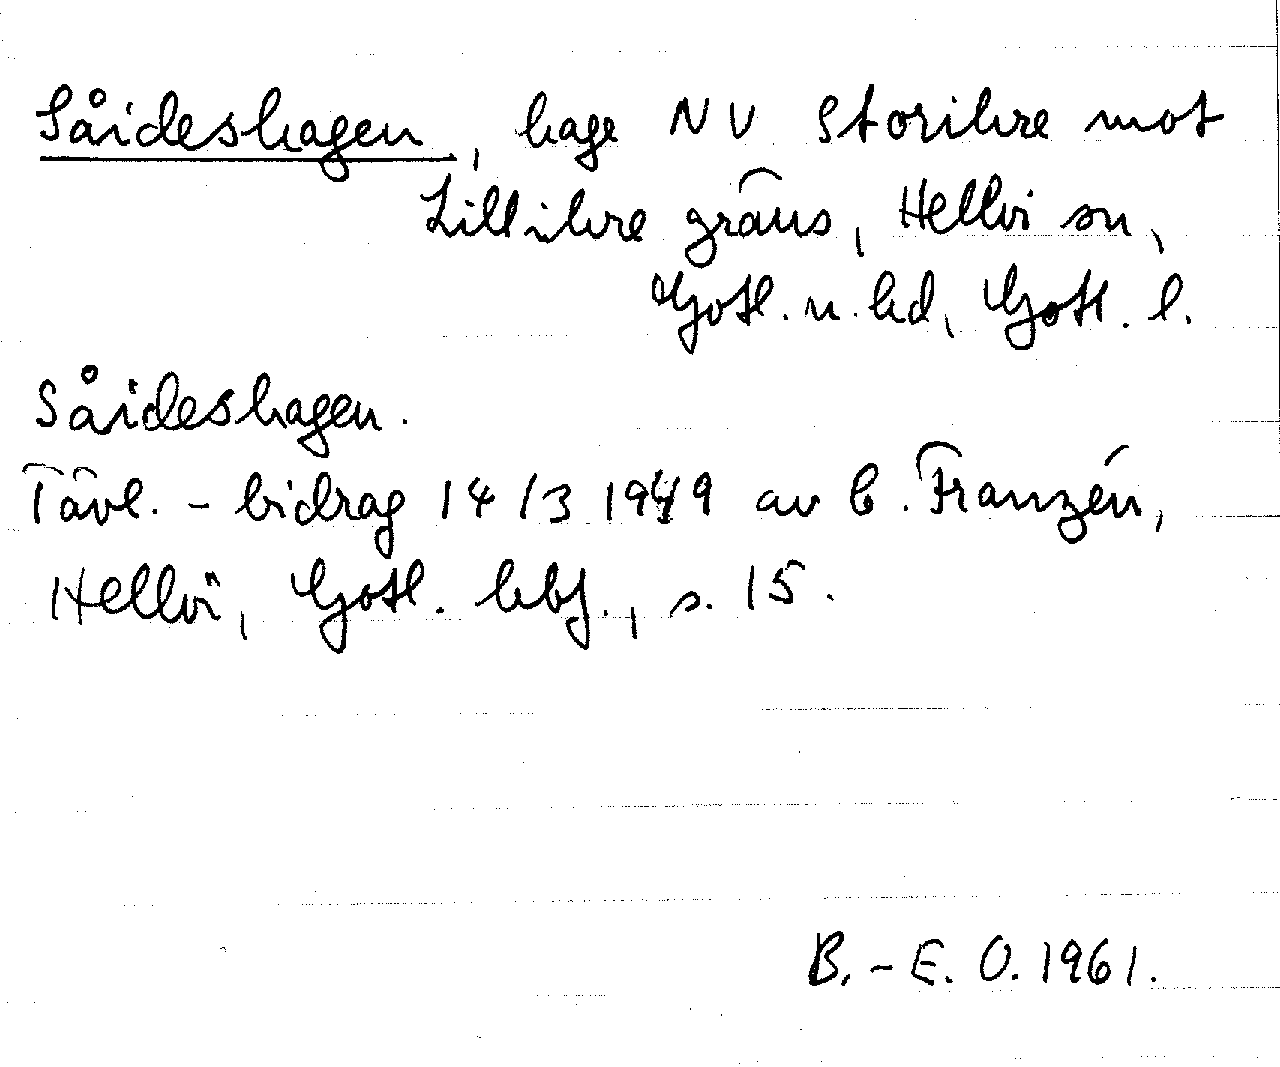 Såideshagen, hage NV Storihre mot
Lillihre gräns, Hellvi sn,
Gotl. n. hd, Gotl. l.
Såideshagen.
Tävl. - bidrag 14/3 1949 av C. Franzén,
Hellvi, Gotl. hbf., s. 15.
B.-E. O. 1961.